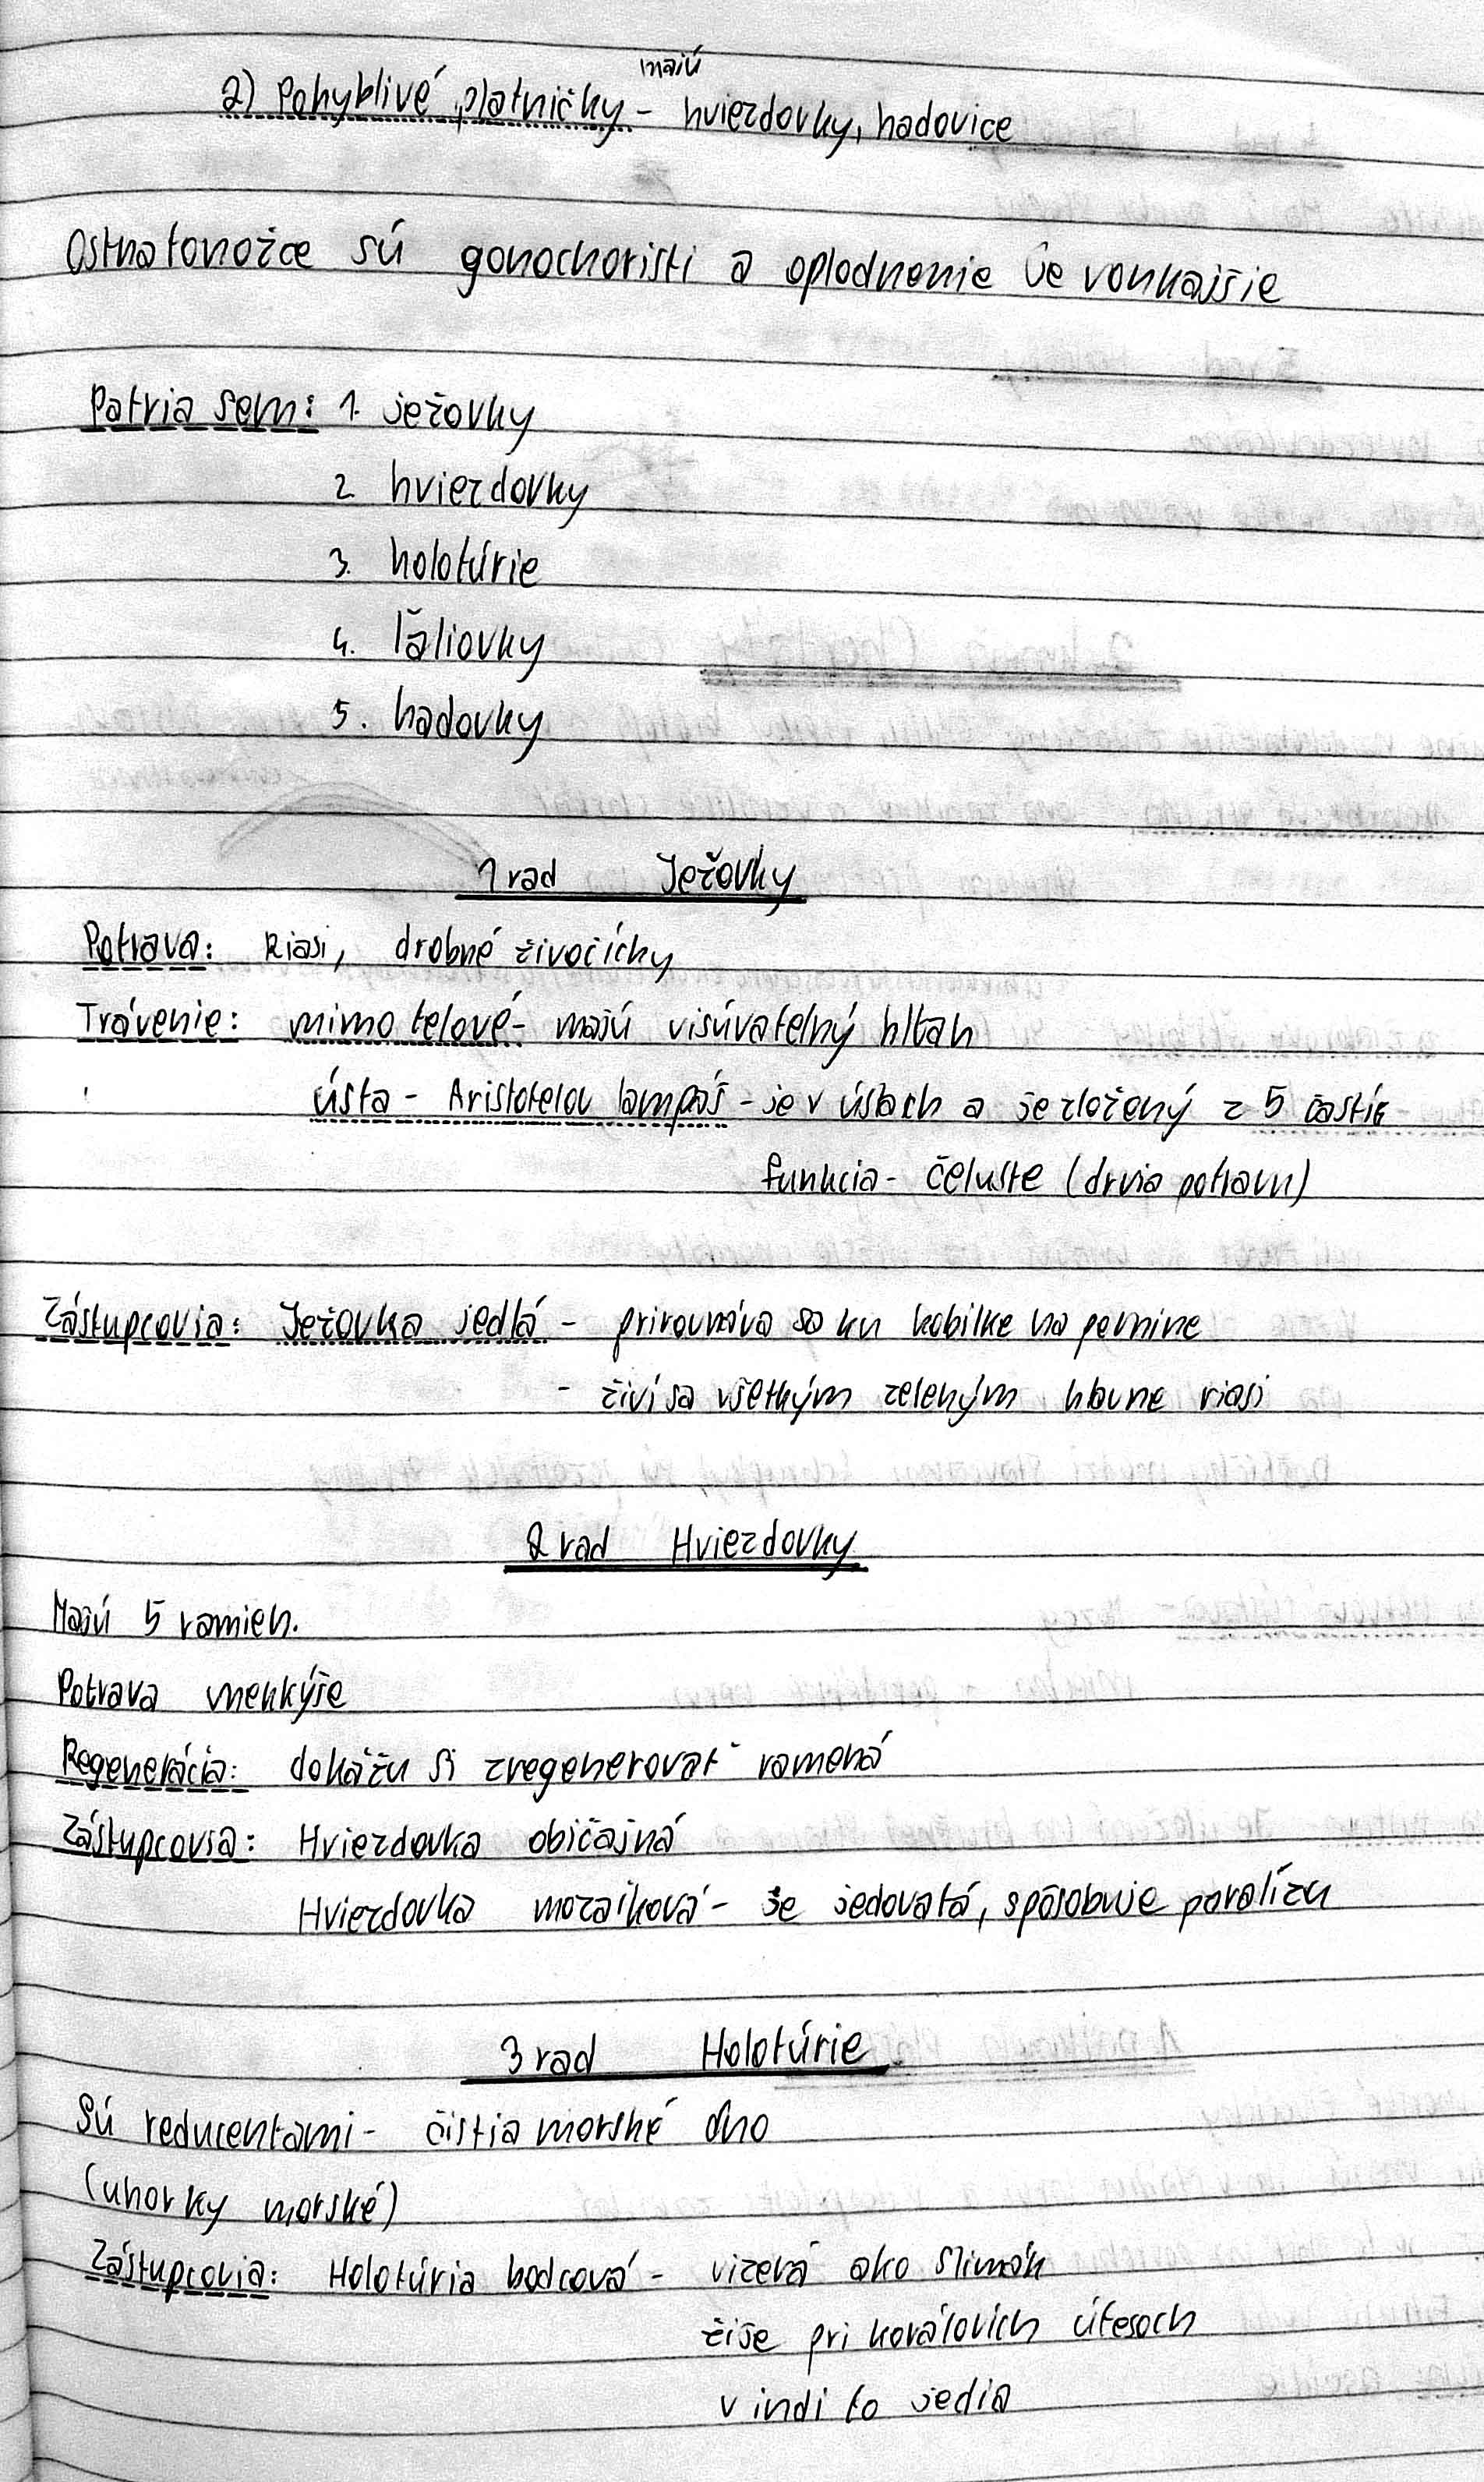 majú
2) Pohyblivé platničky - hviezdovky, hadovice
Ostnatonožce sú gonochoristi a oplodnenie je vonkajšie
Patria sem: 1. ježovky
2. hviezdovky
3. holotúrie
4. ľaliovky
5. hadovky
1 rad Ježovky
Potrava: Riasi, drobné živočíchy
Trávenie: mimo telové - majú visúvateľný hltan
ústa - Aristotelov lampáš - je v ústach a je zložený z 5 častí
funkcia - čeluste (drvia potravu)
Zástupcovia: Ježovka jedlá - prirovnáva sa ku kobilke na pevnine
- živí sa všetkým zeleným hlavne riasi
2 rad Hviezdovky
Majú 5 ramien.
Potrava mekkýše
Regenerácia: dokážu si zregenerovať ramená
Zástupcovia: Hviezdovka običajná
Hviezdovka mozaiková - je jedovatá, spôsobuje paralízu
3 rad Holotúrie
Sú reducentami - čistia morské dno
(uhorky morské)
Zástupcovia: Holotúria bodcová - vizerá ako slimák
žije pri korálových útesoch
v indi to jedia